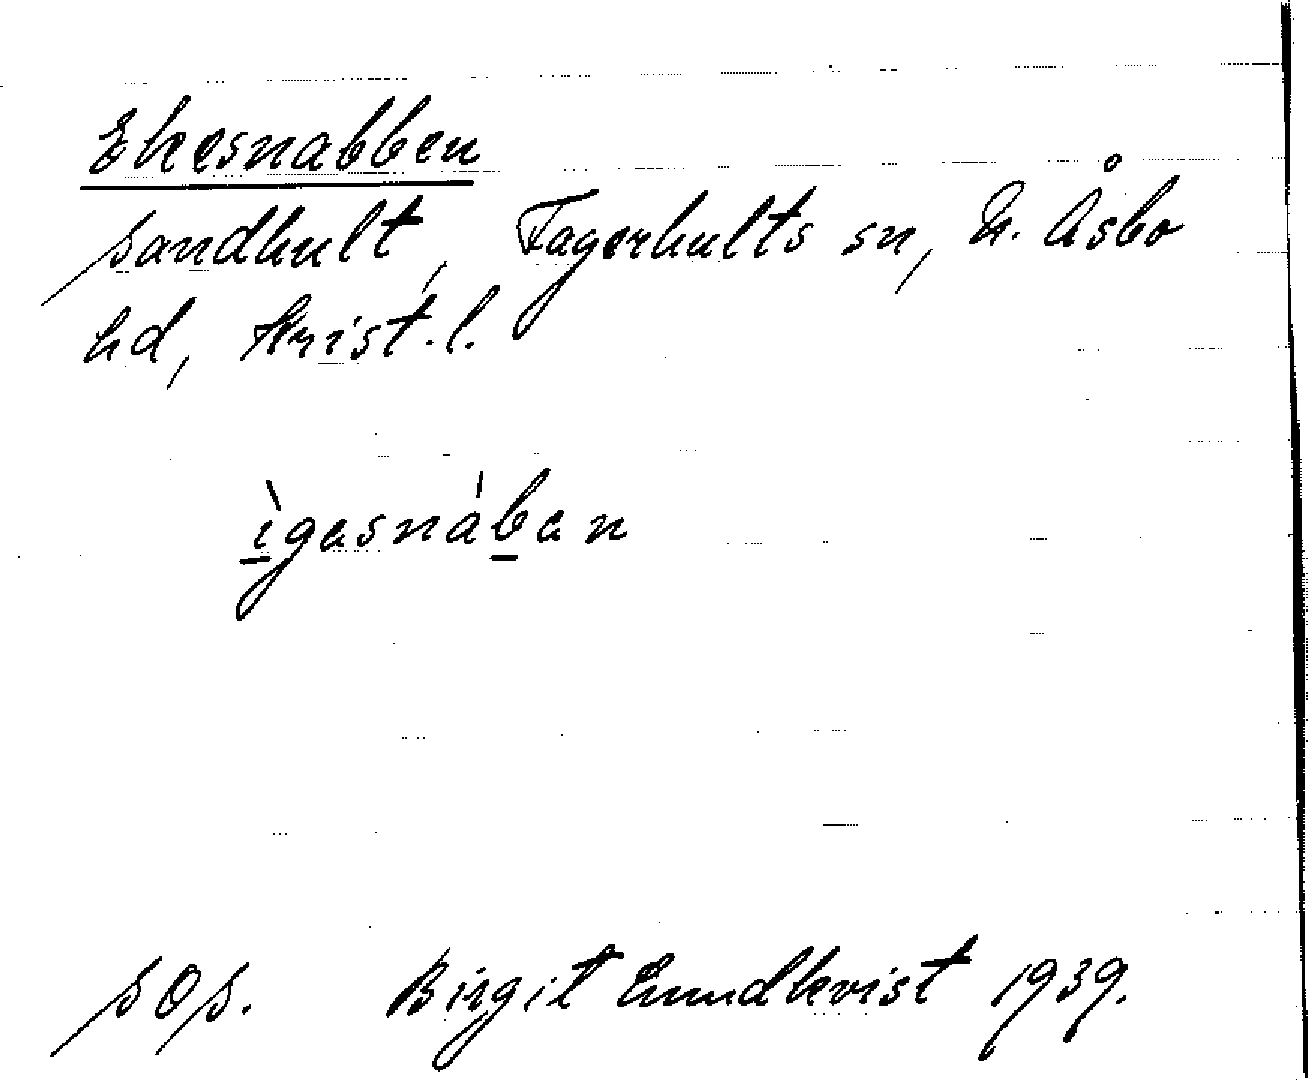 Ekesnabben
Sandhult, Fagerhults sn, N. Åsbo
hd, Krist. l.
ìgasnában
SOS. Birgit Lundkvist 1939.